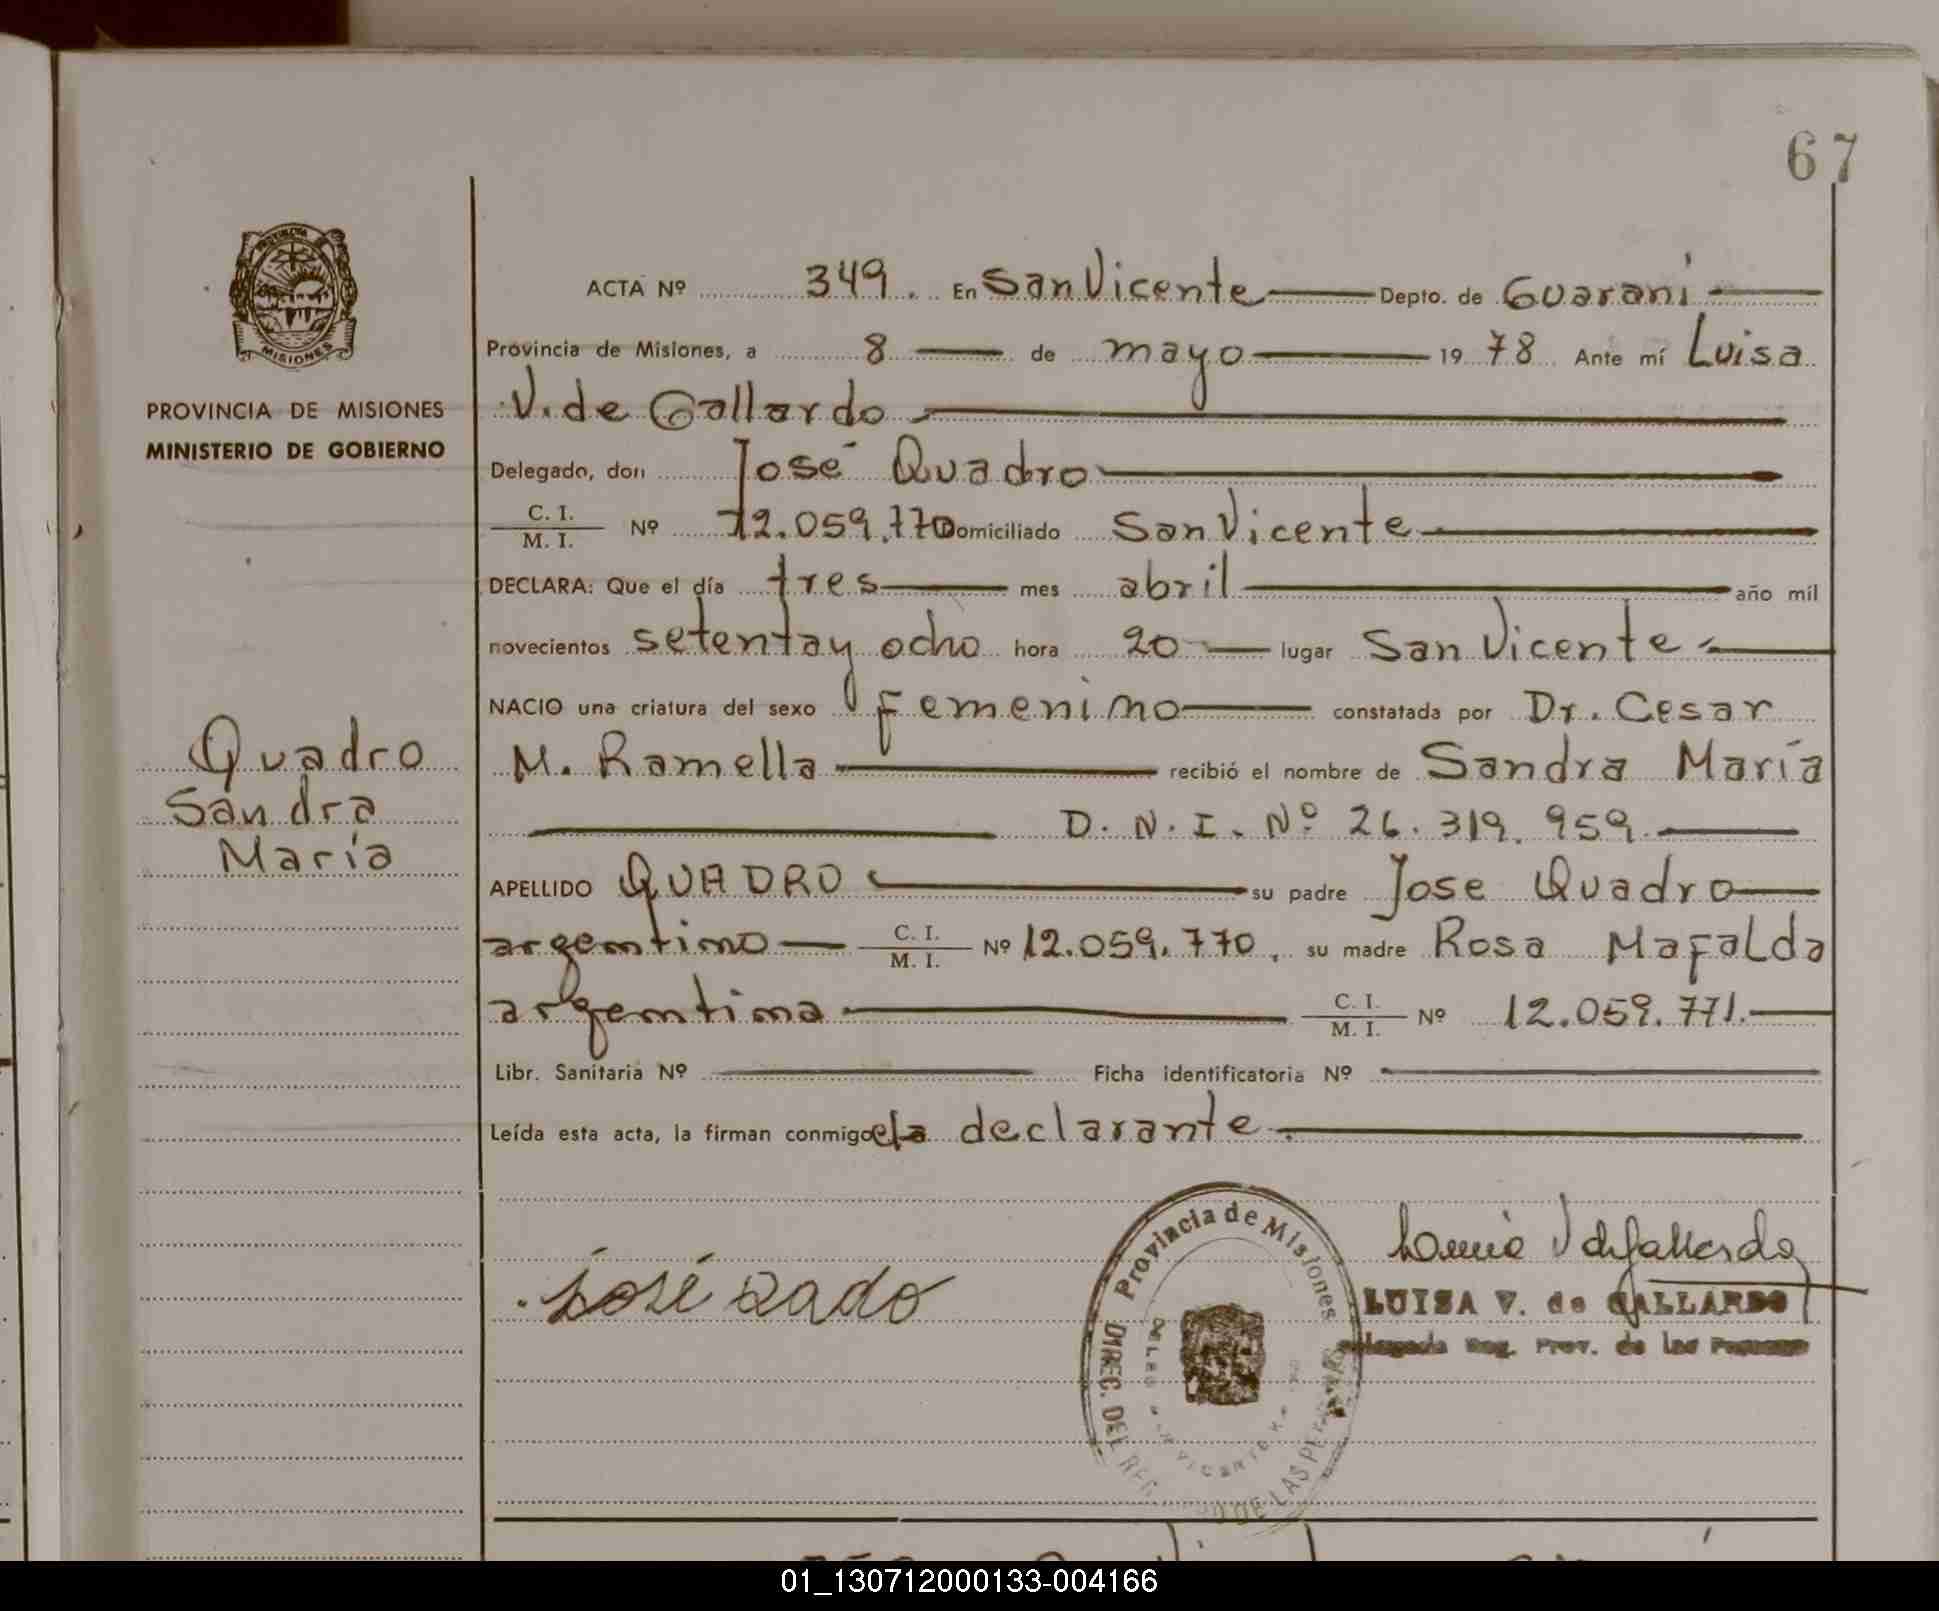 67
MISIONES
PROVINCIA DE MISIONES
MINISTERIO DE GOBIERNO
Quadro
Sandra
María
ACTA Nº 349. En San Vicente Depto. de Guaraní
Provincia de Misiones, a 8 de mayo 19 78 Ante mí Luisa
V. de Gallardo
Delegado, don José Quadro
C. I. / M. I. Nº 12.059.770 Domiciliado San Vicente
DECLARA: Que el día tres mes abril año mil
novecientos setenta y ocho hora 20 lugar San Vicente
NACIO una criatura del sexo femenino constatada por Dr. Cesar
M. Ramella recibió el nombre de Sandra María
D. N. I. Nº 26.319.959.
APELLIDO QUADRO su padre Jose Quadro
argentino C. I. / M. I. Nº 12.059.770, su madre Rosa Mafalda
argentina C. I. / M. I. Nº 12.059.771.
Libr. Sanitaria Nº Ficha identificatoria Nº
Leída esta acta, la firman conmigo el declarante.
Provincia de Misiones
DIREC. DEL REG DE LAS PER
LUISA V. de GALLARDO
Reg. Prov. de las
01_130712000133-004166